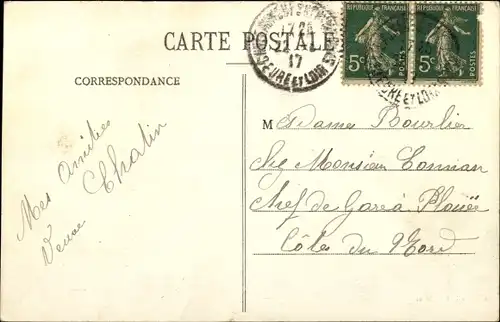 CARTE POSTALE
17
EURE ET LOIR
REPUBLIQUE FRANÇAISE
5c POSTES
REPUBLIQUE FRANÇAISE
5c POSTES
CORRESPONDANCE
Mes Amitiés
Veuve Chatin
Mesdame Bourlier
Monsieur Connan
Chef de Gare à Plouër
Côtes du Nord